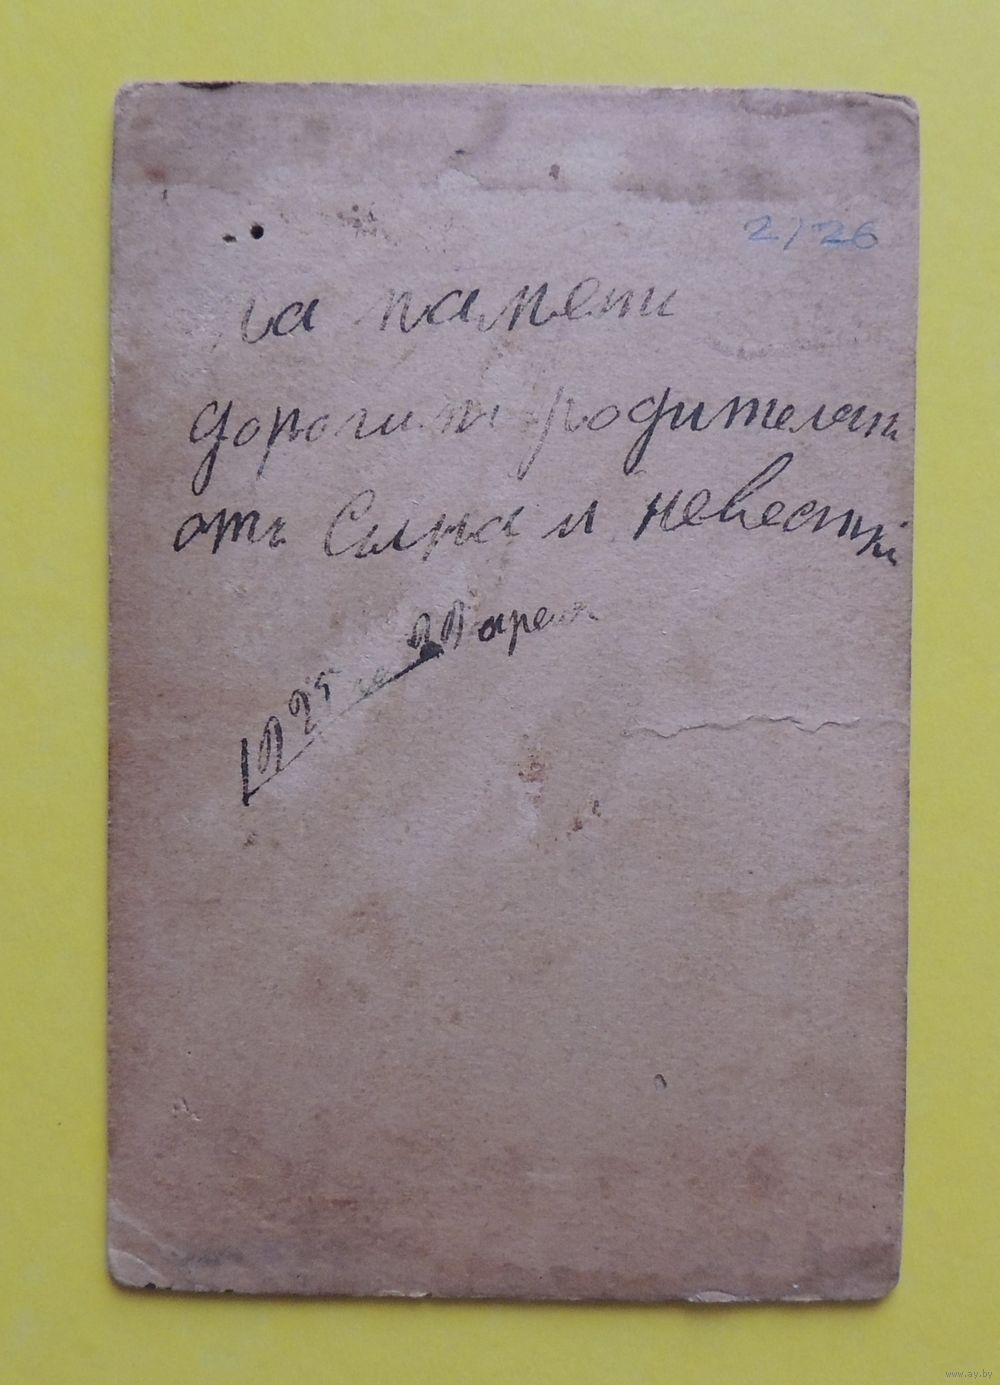 2/26
на памет
дорогим родителям
отъ Сына и невестки
1925 го апреля
www.ay.by